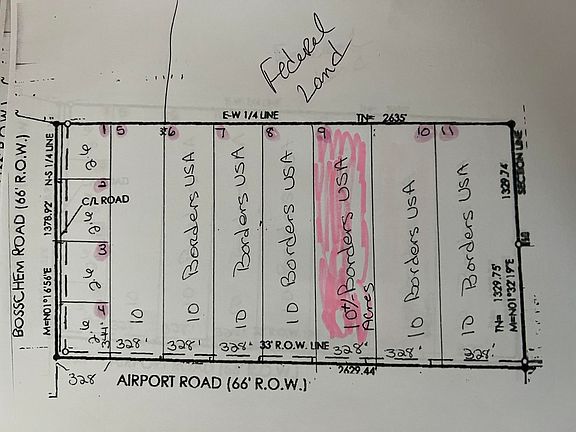 Federal
Land
E-W 1/4 LINE
TN= 2635'
BOSSCHEM ROAD (66' R.O.W.)
1378.92' N-S 1/4 LINE
M=N01°16'56"E
C/L ROAD
1
2
3
4
5
*6
7
8
9
10
11
344'
10
10 Borders USA
10 Borders USA
10 Borders USA
10 1/2 Borders USA
Acres
10 Borders USA
10 Borders USA
328'
328'
328'
33' R.O.W. LINE
328'
328'
328'
328
2629.44'
AIRPORT ROAD (66' R.O.W.)
SECTION LINE
1329.74'
TN= 1329.75'
M=N01°32'19"E